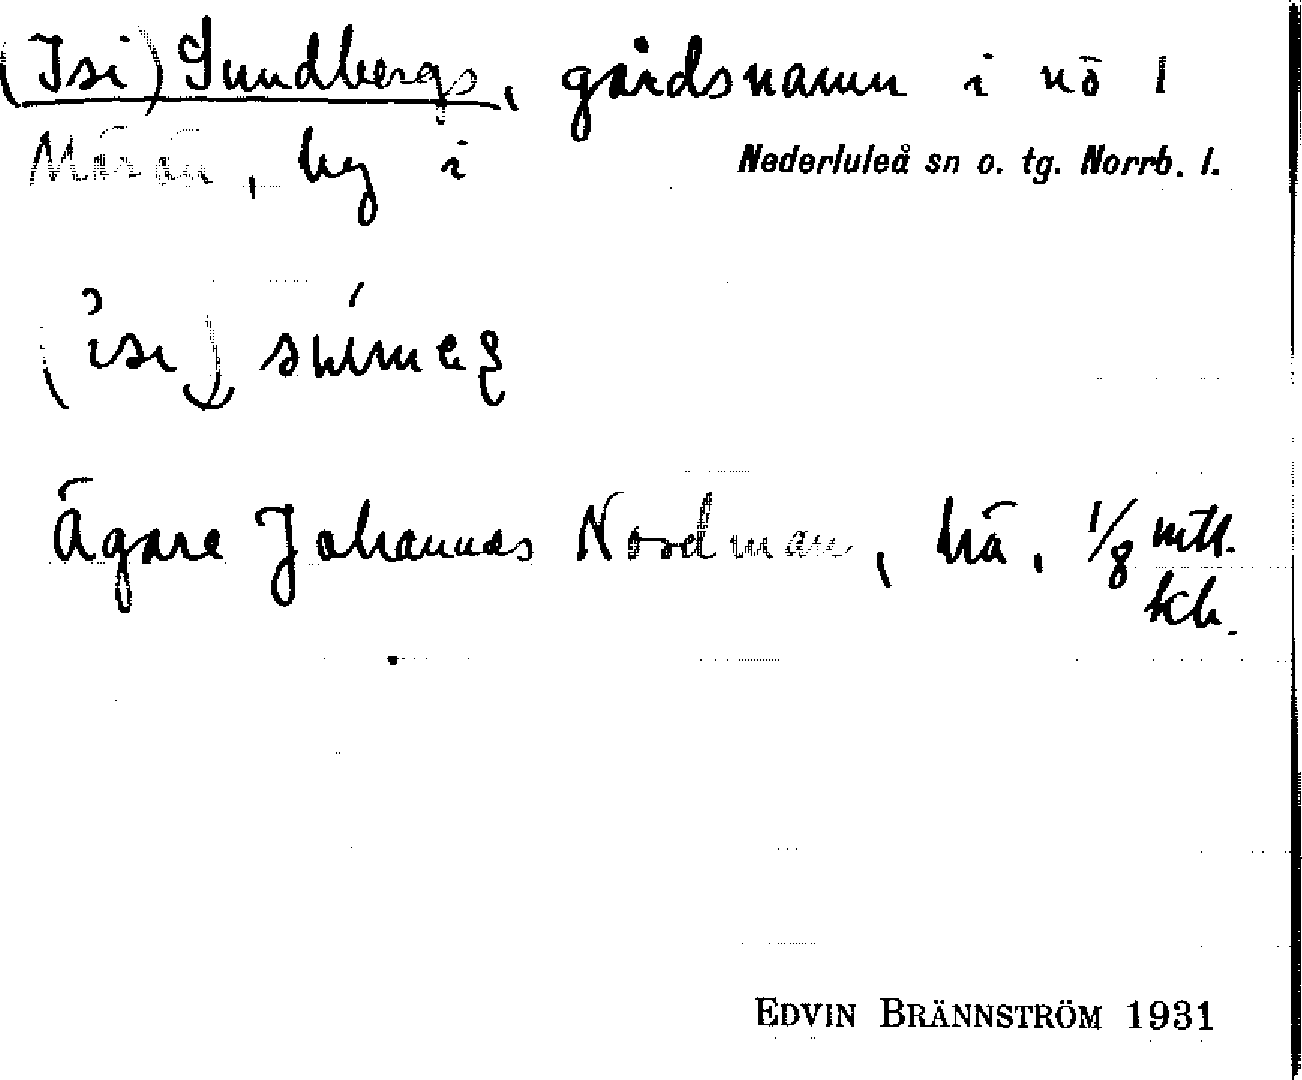 (Isi) Sundbergs, gårdsnamn i nö 1
Mörön, by i Nederluleå sn o. tg. Norrb. l.
(isi)
Ägare Johannes Nordman, hä. 1/8 mtl.
kb.
EDVIN BRÄNNSTRÖM 1931